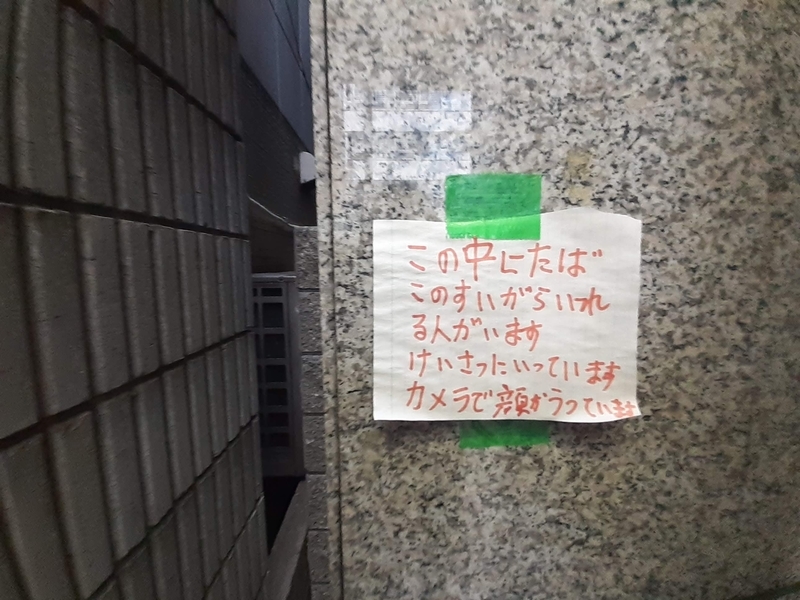 この中にたば
このすいがらいれ
る人がいます
けいさつにいっています
カメラで顔がうつっています